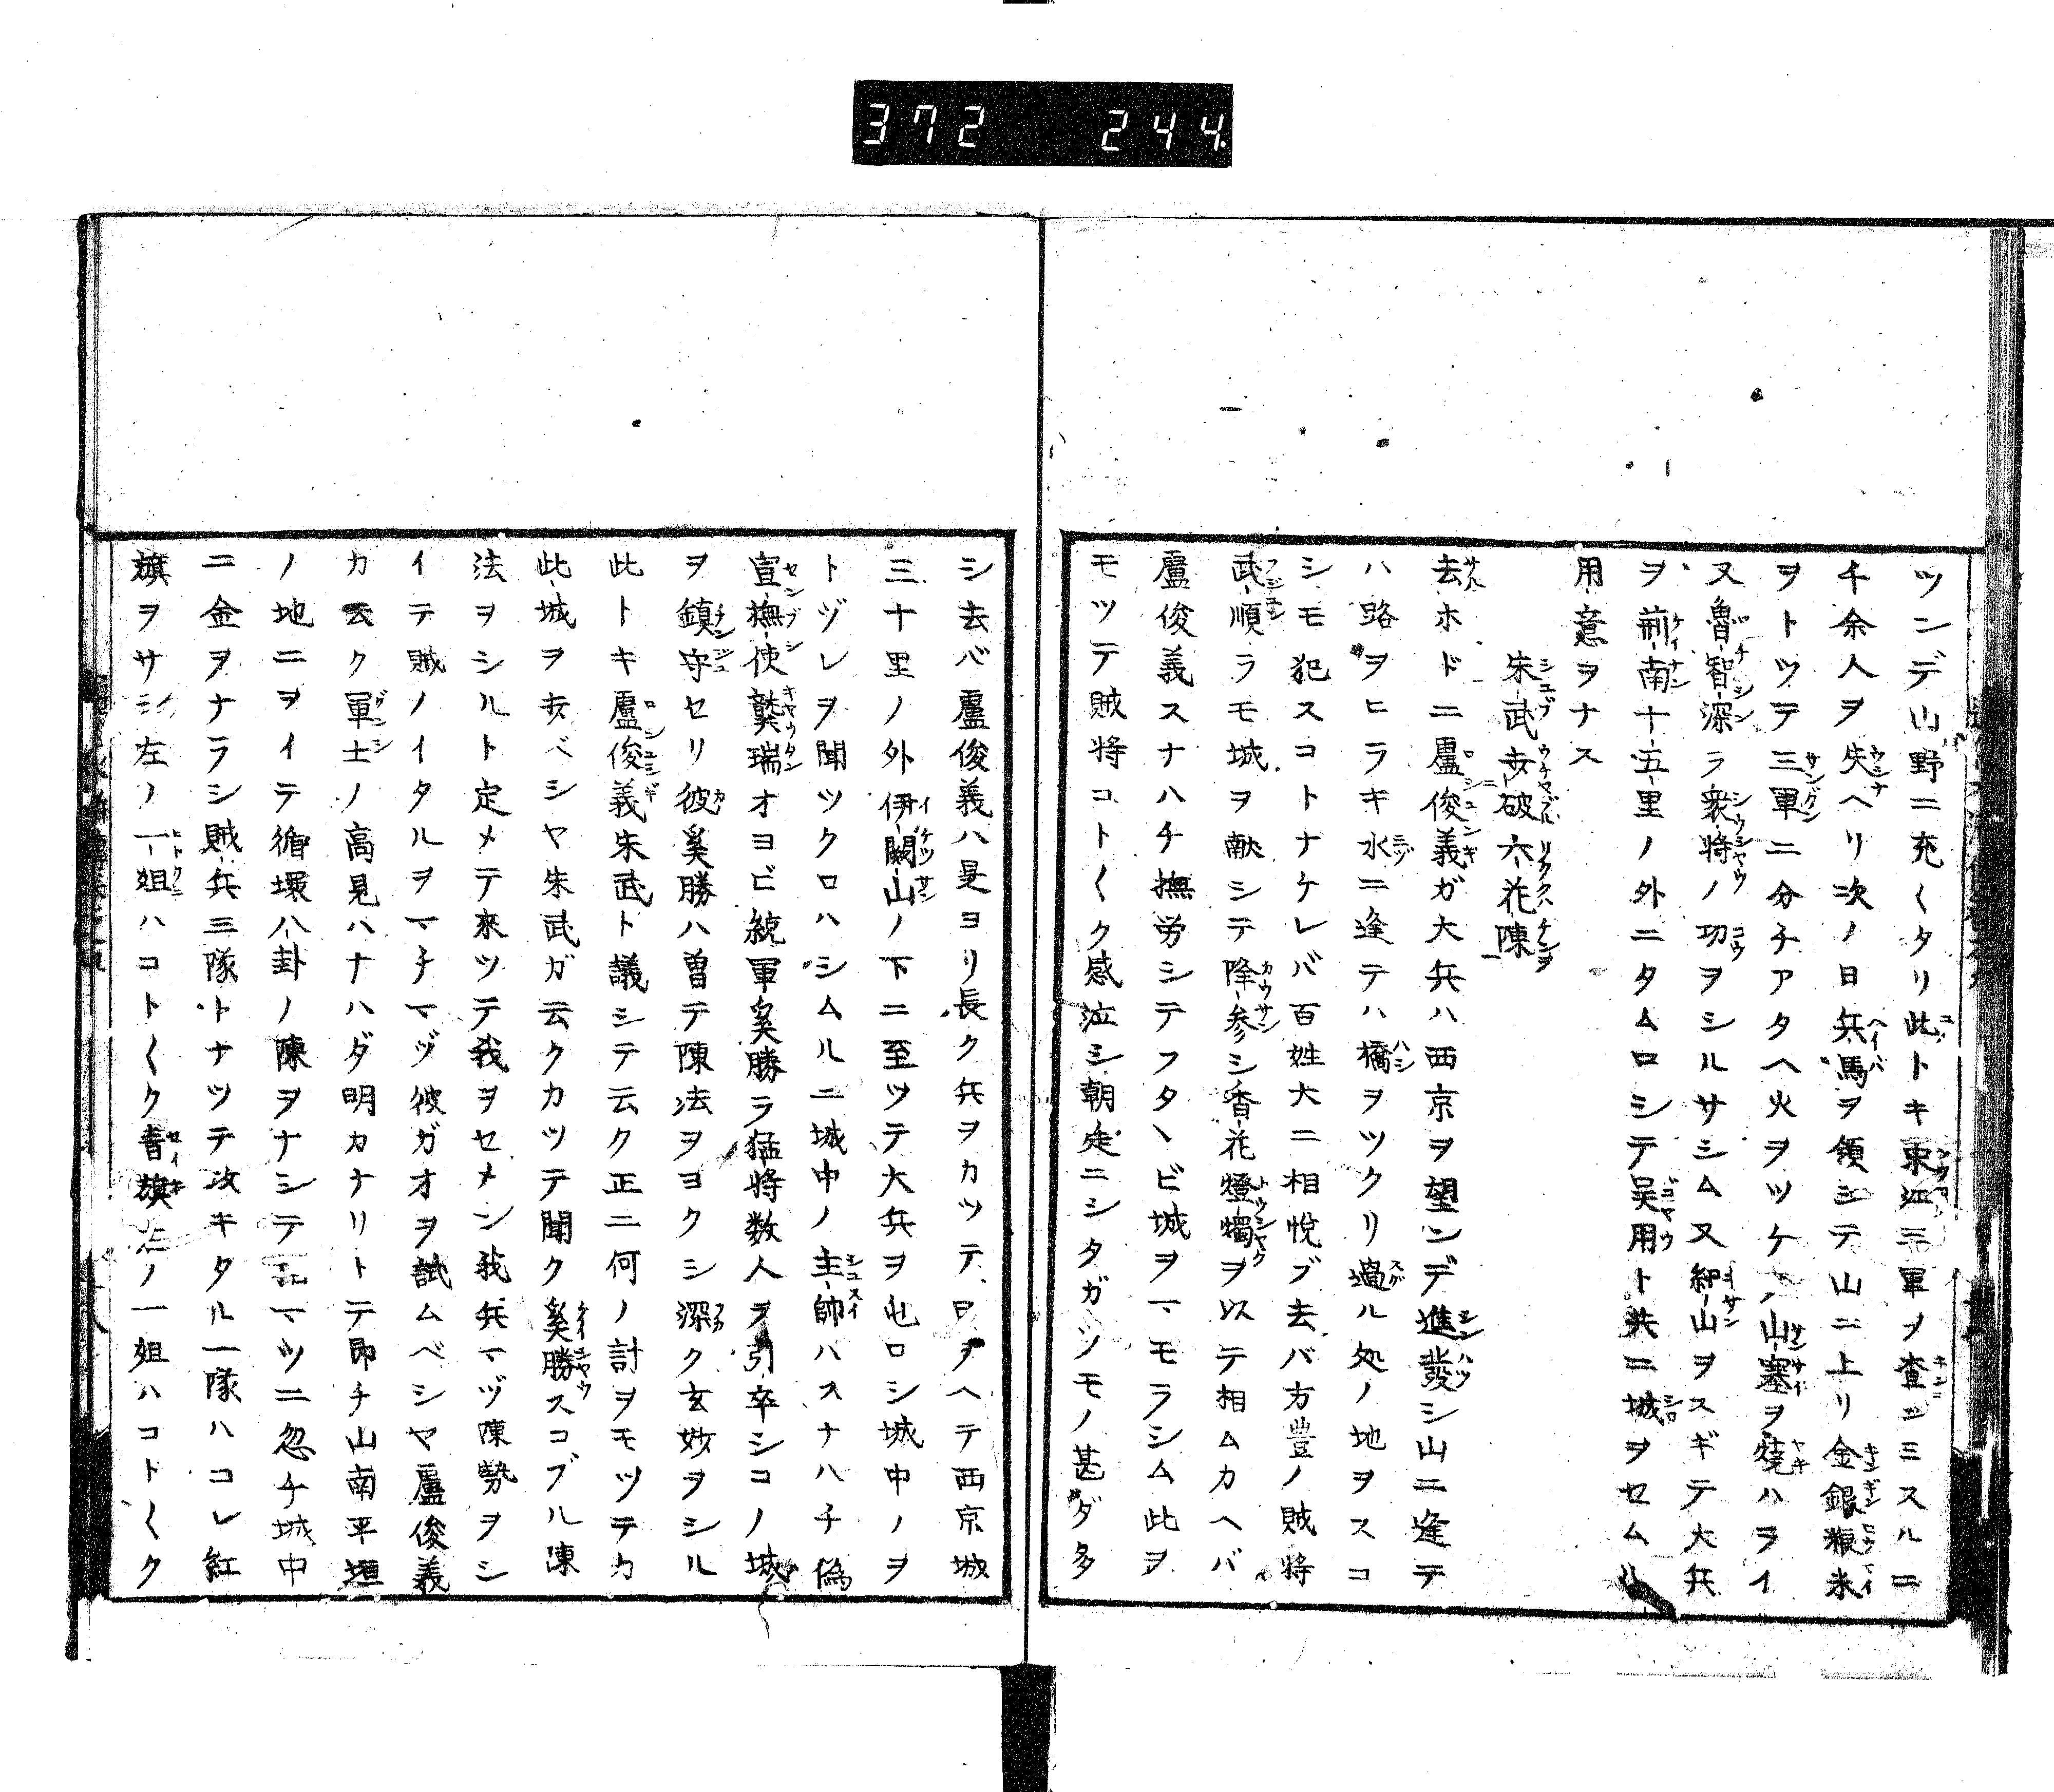 372 244.
ツンデ山野ニ充〱タリ此トキ宋江三軍ノ査ニミスルニ
千余人ヲ失ヘリ次ノ日兵馬ヲ領シテ山ニ上リ金銀粮米
ヲトツテ三軍ニ分チアタヘ火ヲツケ山塞ヲ焼ハライ
又魯智深ラ衆将ノ功ヲシルサシム又紀山ヲスギテ大兵
ヲ荊南十五里ノ外ニタムロシテ呉用ト共ニ城ヲセムル
用意ヲナス
朱武攻破六花陳
去ホドニ盧俊義ガ大兵ハ西京ヲ望ンデ進發シ山ニ逢テ
ハ路ヲヒラキ水ニ逢テハ橋ヲツクリ過ル処ノ地ヲスコ
シモ犯スコトナケレバ百姓大ニ相悦ブ去バ方豊ノ賊将
武順ラモ城ヲ献シテ降参シ香花燈燭ヲ以テ相ムカヘバ
盧俊義スナハチ撫労シテフタヽビ城ヲマモラシム此ヲ
モツテ賊将コト〱ク感泣シ朝廷ニシタガツモノ甚ダ多
シ去バ盧俊義ハ是ヨリ長ク兵ヲカツテ日ヲヘテ西京城
三十里ノ外伊闕山ノ下ニ至ツテ大兵ヲ屯ロシ城中ノヲ
トヅレヲ聞ツクロハシムルニ城中ノ主帥ハスナハチ偽
宣撫使龔瑞オヨビ統軍奚勝ラ猛将数人ヲ引卒シコノ城
ヲ鎮守セリ彼奚勝ハ曽テ陳法ヲヨクシ深ク玄妙ヲシル
此トキ盧俊義朱武ト議シテ云ク正ニ何ノ計ヲモツテカ
此城ヲ攻ベシヤ朱武ガ云クカツテ聞ク奚勝スコブル陳
法ヲシルト定メテ来ツテ我ヲセメン我兵マヅ陳勢ヲシ
イテ賊ノイタルヲマチマヅ彼ガオヲ試ムベシヤ盧俊義
カ云ク軍士ノ高見ハナハダ明カナリトテ即チ山南平垣
ノ地ニヲイテ循環八卦ノ陳ヲナシテマツニ忽チ城中
ニ金ヲナラシ賊兵三隊トナツテ攻キタル一隊ハコレ紅
旗ヲサシ左ノ一姐ハコト〱ク青旗右ノ一姐ハコト〱ク